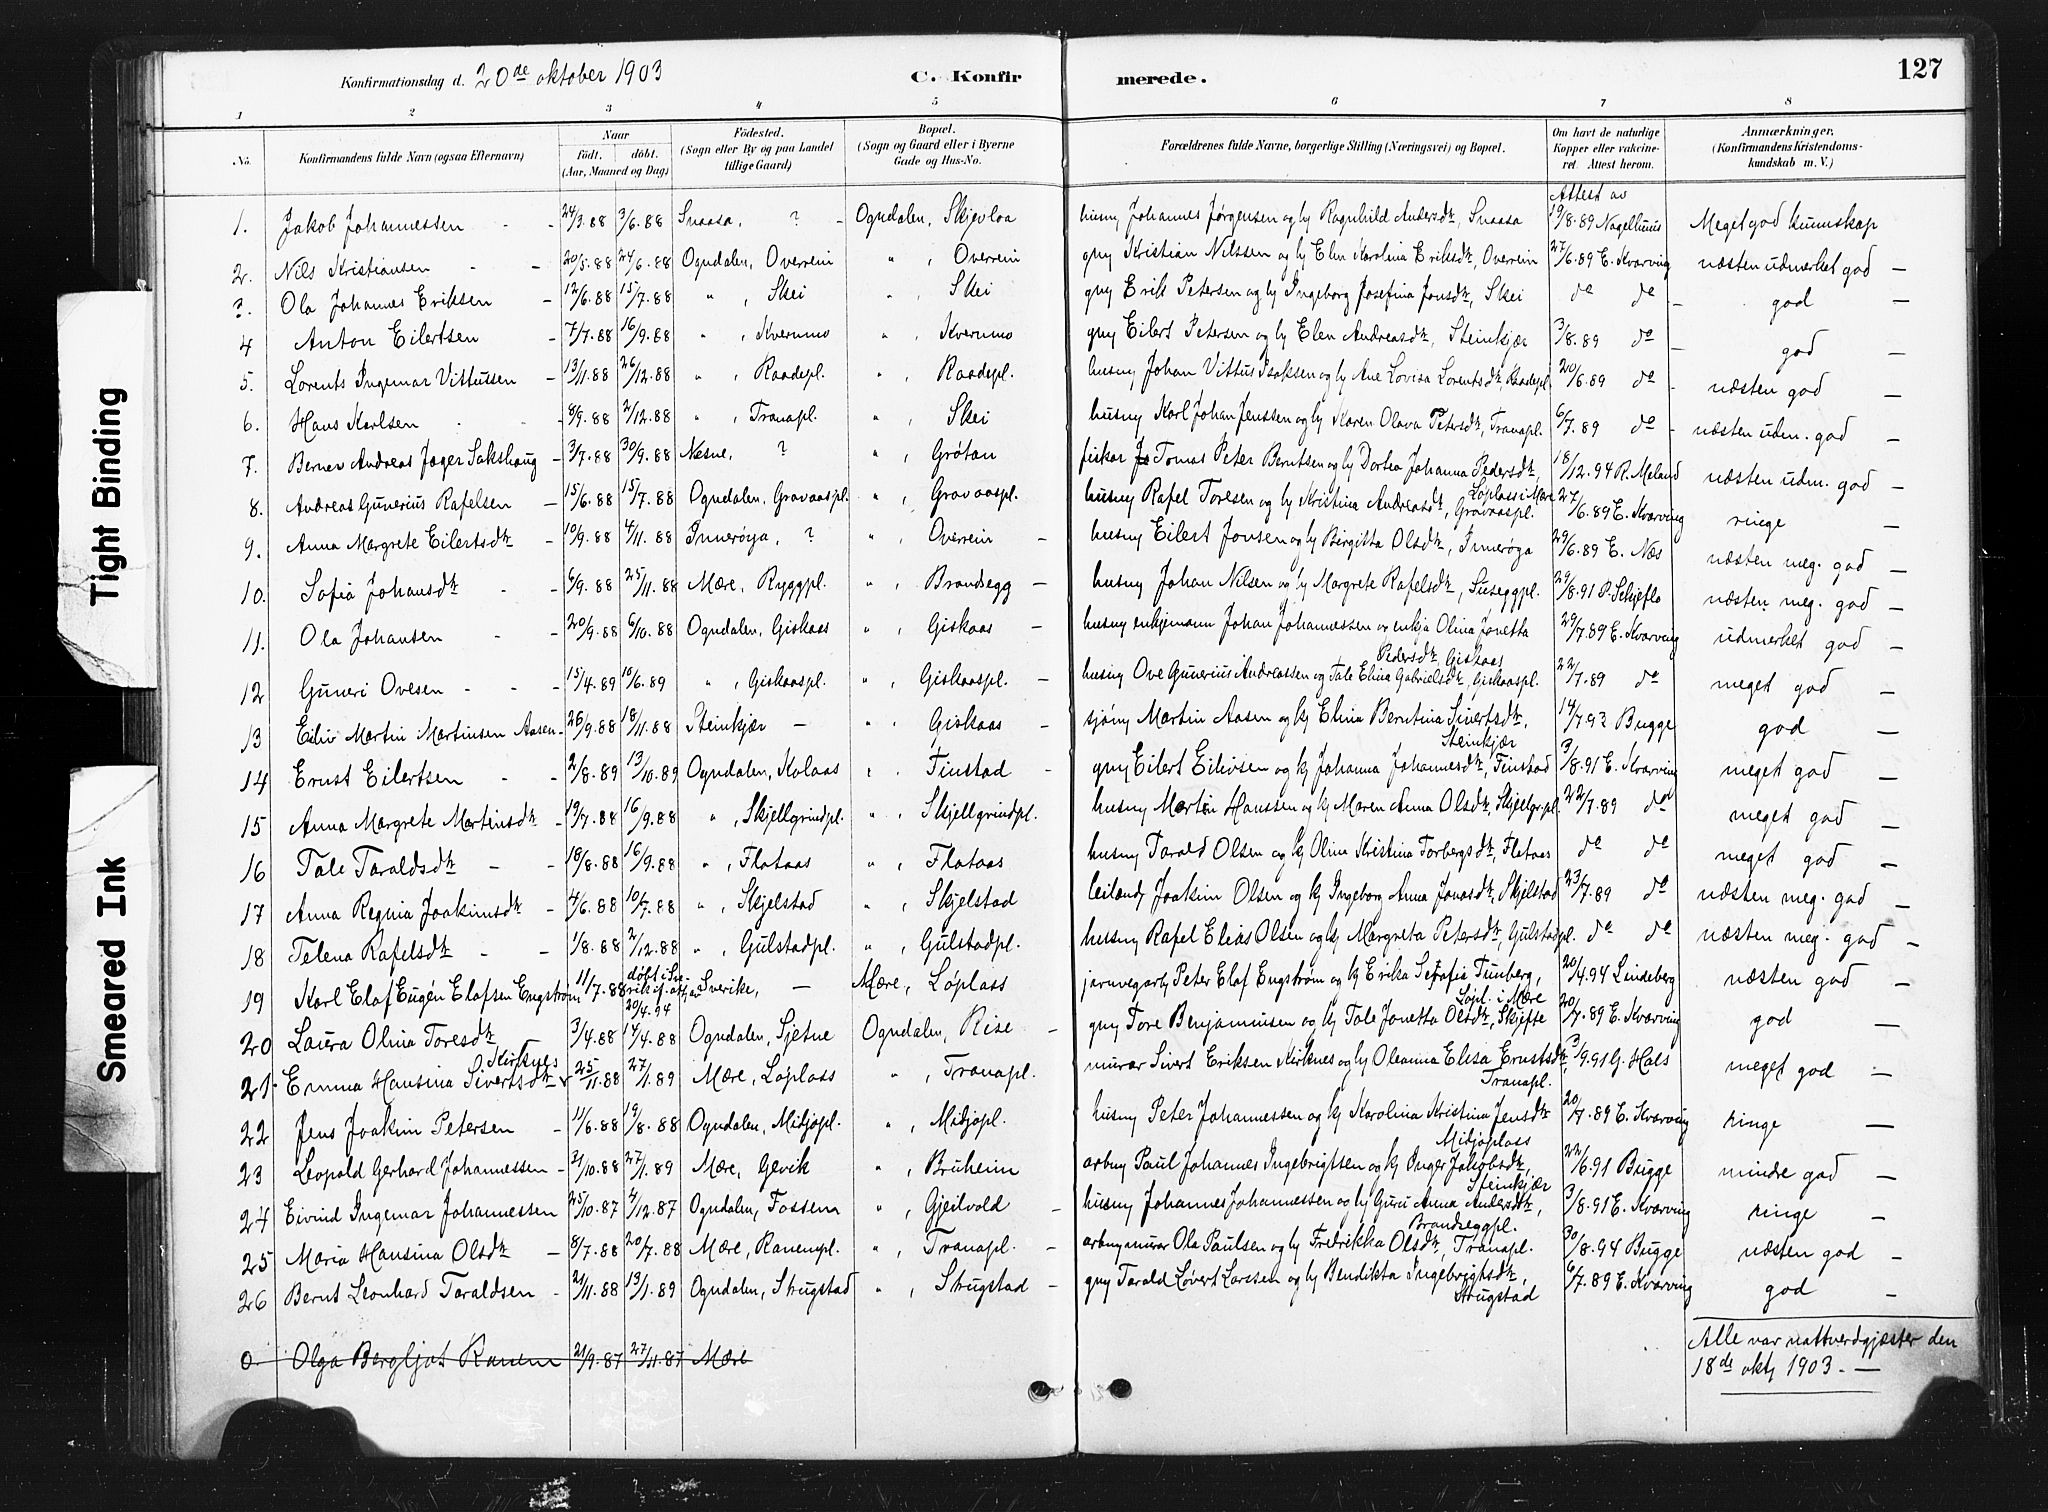 Konfirmationsdag d. 20de oktober 1903 C. Konfirmerede. 127
1 2 3 4 5 6 7 8
No. Konfirmandens fulde Navn (ogsaa Efternavn) Naar födt. döbt. (Aar, Maaned og Dag) Födested. (Sogn eller By og paa Landet tillige Gaard) Bopæl. (Sogn og Gaard eller i Byerne Gade og Hus-No. Forældrenes fulde Navne, borgerlige Stilling (Næringsvei) og Bopæl. Om havt de naturlige Kopper eller vakcineret. Attest herom. Anmærkninger, (Konfirmandens Kristendomskundskab m. V.)
Attest av
1. Jakob Johannessen - - 24/3.88 3/6.88 Snaasa, ? - Ogndalen, Skjevloa husmy Johannes Jørgensen og hy Ragnhild Andersdtr, Snaasa 19/8.89 Nagelhuus Meget god kunnskap
2. Nils Kristiansen - - 20/5.88 24/6.88 Ogndalen, Overrein " , Overrein gmy Kristian Nilssen og hy Elen Karolina Eriksdtr, Overrein 27/6.89 E. Kvarving næsten udmerket god -
3. Ola Johannes Eriksen - 12/6.88 15/7.88 " , Skei " , Skei gmy Erik Petersen og hy Ingeborg Josefina Jonsdtr, Skei do do - god -
4 Anton Eilertsen - 7/7.88 16/9.88 " , Kvernmo " , Kvernmo gmy Eilert Petersen og hy Elen Andreasdtr, Steinkjær 3/8.89 do - god -
5. Lorents Ingemar Vittussen - 13/11.88 26/12.88 " , Raadepl. " , Raadepl. husmy Johan Vittus Isaksen og hy Ane Lovisa Lorentsdtr, Raadepl 20/6.89 do - næsten god -
6. Hans Karlsen - - 8/9.88 2/12.88 " , Tranapl. " , Skei husmy Karl Johan Jenssen og hy Karen Olava Petersdtr, Tranapl. 6/7.89 do - næsten udm. god -
7. Berner Andreas Jager Sakshaug - 3/7.88 30/9.88 Nesne, ? " , Grøtan fisker Jo Tomas Peter Berntsen og hy Dortea Johanna Pedersdtr, Løplass i Mære 18/12.94 R. Meland næsten udm. god -
8. Andreas Gunerius Rafelsen - 15/6.88 15/7.88 Ogndalen, Gravaaspl. " , Gravaaspl. husmy Rafel Toresen og hy Kristina Andreasdtr, Gravaaspl. 27/6.89 E. Kvarving ringe -
9. Anna Margrete Eilertsdtr - 10/9.88 4/11.88 Innerøya, ? " , Overrein - husmy Eilert Jonsen og hy Birgitta Olsdtr, Innerøya 29/6.89 E. Næs næsten meg. god -
10. Sofia Johansdtr - - 6/9.88 25/11.88 Mære, Ryggpl. " , Brandsegg - husmy Johan Nilsen og hy Margrete Rafelsdtr, Suseggpl. 29/8.91 P. Schjeflo næsten meg. god -
11. Ola Johansen - - 20/9.88 6/10.88 Ogndalen, Giskaas " , Giskaas - husmy enkjemann Johan Johannessen og enkja Olina Jonetta Pedersdtr, Giskaas 29/7.89 E. Kvarving udmerket god -
12 Guneri Ovesen - - - 15/4.89 10/6.89 " , Giskaaspl. " , Giskaaspl. - husmy Ove Gunerius Andreassen og Tale Elina Gabrielsdtr, Giskaaspl. 22/7.89 do meget god -
13 Eiliv Martin Martinsen Aasen - 26/9.88 18/11.88 Steinkjær - " , Giskaas - sjømy Martin Aasen og hy Elina Berntina Sivertsdtr, Steinkjær 14/7.92 Bugge god -
14 Ernst Eilertsen - - 2/8.89 13/10.89 Ogndalen, Kolaas " , Finstad - gmy Eilert Eilivsen og hy Johanna Johannesdtr, Finstad 3/8.91 E. Kvarving meget god -
15 Anna Margrete Martinsdtr - 19/7.88 16/9.88 " , Skjellgrindpl. " , Skjellgrindpl. husmy Martin Hanssen og hy Maren Anna Olsdtr, Skjellgr.pl. 22/7.89 do meget god -
16 Tale Taraldsdtr - - 18/8.88 16/9.88 " , Flataas " , Flataas husmy Tarald Olsen og hy Olina Kristina Torbergsdtr, Flataas do do meget god -
17 Anna Regina Joakimsdtr - 4/6.88 10/7.88 " , Skjelstad " , Skjelstad leilendy Joakim Olsen og hy Ingeborg Anna Jonasdtr, Skjelstad 23/7.89 do næsten meg. god -
18 Telena Rafelsdtr - - 1/8.88 2/12.88 " , Gulstadpl. " , Gulstadpl. husmy Rafel Elias Olsen og hy Margreta Petersdtr, Gulstadpl. do do næsten meg. god -
19 Karl Elof Eugén Elofsen Engstrøm 11/7.88 døbt i Sve- 20/4.94 Sverike, - Mære, Løplass jarnvegarb Peter Elof Engstrøm og hy Erika Serafia Tunberg, Løpl. i Mære 20/4.94 Lindeberg næsten god -
20 Laura Olina Toresdtr 3/4.88 14/4.88 Ogndalen, Sjetne Ogndalen, Rise - gmy Tore Benjaminsen og hy Tale Jonetta Olsdtr, Skjefte 20/7.89 E. Kvarving god -
21. Emma Hansina Sivertsdtr Kirknes 25/11.88 27/1.89 Mære, Løplass " , Tranapl. murar Sivert Eriksen Kirknes og hy Oleanna Elisa Ernstsdtr, Tranapl. 3/9.91 G. Hals meget god -
22 Jens Joakim Petersen - 11/6.88 19/8.88 Ogndalen, Midjøpl. " , Midjøpl. husmy Peter Johannessen og hy Karolina Kristina Jensdtr Midjøplass 20/7.89 E. Kvarving ringe -
23 Leopold Gerhard Johannessen - 31/10.88 27/1.89 Mære, Gevik " , Bruheim arbmy Paul Johannes Ingebrigtsen og hy Inger Jakobsdtr, Steinkjær 22/6.91 Bugge mindre god -
24 Eivind Ingemar Johannessen 25/10.87 4/12.87 Ogndalen, Fossem " , Gjeilvold - husmy Johannes Johannessen og hy Guru Anna Andersdtr, Brandseggpl. 3/8.91 E. Kvarving ringe -
25 Maria Hansina Olsdtr - 8/7.88 20/7.88 Mære, Ranempl. " , Tranapl. - arbmy murar Ola Paulsen og hy Fredrikka Olsdtr, Tranapl. 30/8.94 Bugge næsten god -
26 Bernt Leonhard Taraldsen - 21/11.88 13/1.89 Ogndalen, Strugstad " , Strugstad - gmy Tarald Løvert Larssen og hy Bendikta Ingebrigtsdtr, Strugstad 6/7.89 E. Kvarving god -
0. Olga Bergljot Ranem 21/9.87 27/11.87 Mære
Alle var nattverdgjæster den
18de okt 1903. -
Tight Binding
Smeared Ink